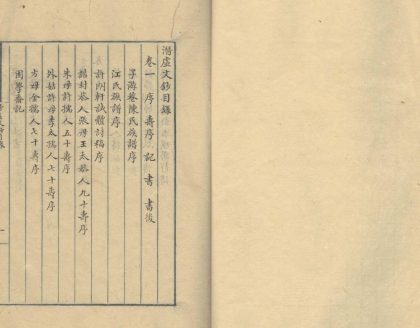 潛虛文鈔目錄
卷一 序 壽序 記 書 書後
子游巷陳氏族譜序
江氏族譜序
許閒軒試體討稿序
誥封恭人張母王太恭人九十壽序
朱母許孺人五十壽序
外姑許母李太孺人七十壽序
方母金孺人七十壽序
困學齋記